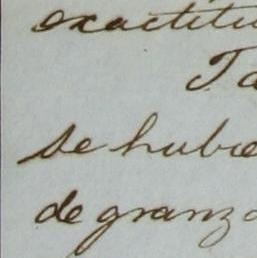 exactitu
Ta
se hubie
de granza